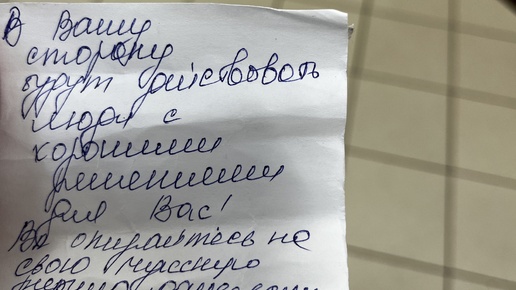 В Вашу
сторону
будут действовать
люди с
хорошими
решениями
для Вас!
Вы опирайтесь на
свою